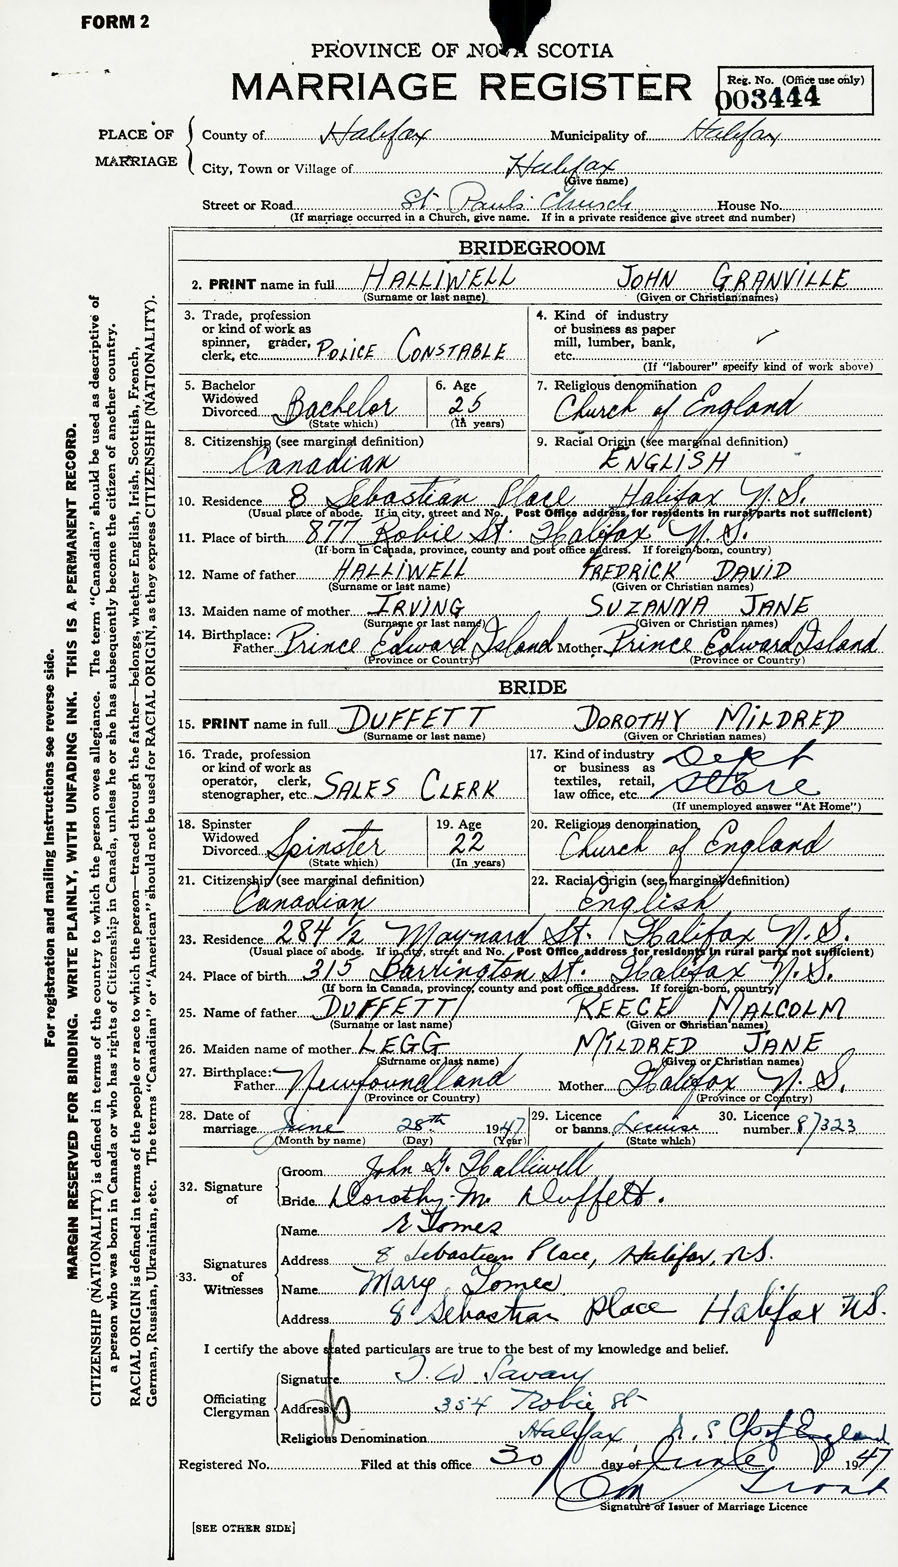 FORM 2
PROVINCE OF NOVA SCOTIA
MARRIAGE REGISTER
Reg. No. (Office use only)
003444
PLACE OF MARRIAGE
County of Halifax Municipality of Halifax
City, Town or Village of Halifax
(Give name)
Street or Road St. Paul's Church House No.
(If marriage occurred in a Church, give name. If in a private residence give street and number)
BRIDEGROOM
2. PRINT name in full HALLIWELL JOHN GRANVILLE
(Surname or last name) (Given or Christian names)
3. Trade, profession or kind of work as spinner, grader, clerk, etc. POLICE CONSTABLE
4. Kind of industry or business as paper mill, lumber, bank, etc.
(If "labourer" specify kind of work above)
5. Bachelor Widowed Divorced Bachelor
(State which)
6. Age 25
(In years)
7. Religious denomination
Church of England
8. Citizenship (see marginal definition)
Canadian
9. Racial Origin (see marginal definition)
ENGLISH
10. Residence 8 Sebastian Place Halifax N.S.
(Usual place of abode. If in city, street and No. Post Office address, for residents in rural parts not sufficient)
11. Place of birth 877 Robie St. Halifax N.S.
(If born in Canada, province, county and post office address. If foreign-born, country)
12. Name of father HALLIWELL FREDRICK DAVID
(Surname or last name) (Given or Christian names)
13. Maiden name of mother IRVING SUZANNA JANE
(Surname or last name) (Given or Christian names)
14. Birthplace: Father Prince Edward Island Mother Prince Edward Island
(Province or Country) (Province or Country)
BRIDE
15. PRINT name in full DUFFETT DOROTHY MILDRED
(Surname or last name) (Given or Christian names)
16. Trade, profession or kind of work as operator, clerk, stenographer, etc. SALES CLERK
17. Kind of industry or business as textiles, retail, law office, etc. Dept Store
(If unemployed answer "At Home")
18. Spinster Widowed Divorced Spinster
(State which)
19. Age 22
(In years)
20. Religious denomination
Church of England
21. Citizenship (see marginal definition)
Canadian
22. Racial Origin (see marginal definition)
English
23. Residence 284 1/2 Maynard St. Halifax N.S.
(Usual place of abode. If in city, street and No. Post Office address for residents in rural parts not sufficient)
24. Place of birth 315 Barrington St. Halifax N.S.
(If born in Canada, province, county and post office address. If foreign-born, country)
25. Name of father DUFFETT REECE MALCOLM
(Surname or last name) (Given or Christian names)
26. Maiden name of mother LEGG MILDRED JANE
(Surname or last name) (Given or Christian names)
27. Birthplace: Father Newfoundland Mother Halifax N.S.
(Province or Country) (Province or Country)
28. Date of marriage June 28th 1947
(Month by name) (Day) (Year)
29. Licence or banns License
(State which)
30. Licence number 87323
32. Signature of
Groom John G. Halliwell
Bride Dorothy M. Duffett.
33. Signatures of Witnesses
Name Tomes
Address 8 Sebastian Place, Halifax, N.S.
Name Mary Tomes
Address 8 Sebastian Place Halifax N.S.
I certify the above stated particulars are true to the best of my knowledge and belief.
Officiating Clergyman
Signature T. W. Savary
Address 354 Robie St
Religious Denomination Halifax, N.S. Ch of England
Registered No. Filed at this office 30 day of June 1947
Signature of Issuer of Marriage Licence
[SEE OTHER SIDE]
For registration and mailing instructions see reverse side.
MARGIN RESERVED FOR BINDING. WRITE PLAINLY, WITH UNFADING INK. THIS IS A PERMANENT RECORD.
CITIZENSHIP (NATIONALITY) is defined in terms of the country to which the person owes allegiance. The term "Canadian" should be used as descriptive of
a person who was born in Canada or who has rights of Citizenship in Canada, unless he or she has subsequently become the citizen of another country.
RACIAL ORIGIN is defined in terms of the people or race to which the person—traced through the father—belongs, whether English, Irish, Scottish, French,
German, Russian, Ukrainian, etc. The terms "Canadian" or "American" should not be used for RACIAL ORIGIN, as they express CITIZENSHIP (NATIONALITY).